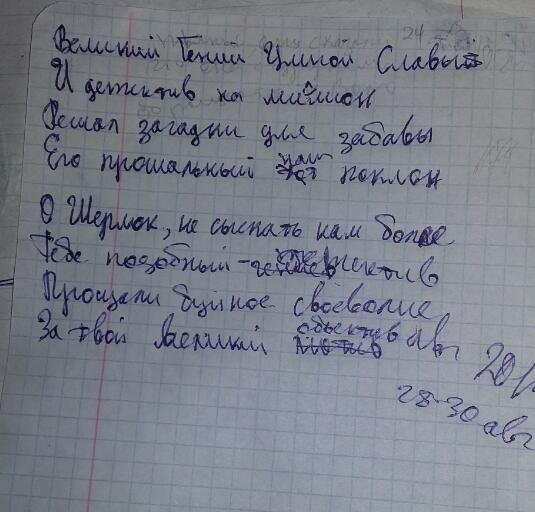 Великий Гений Умной Славы
И детектив на миллион
Решал загадки для забавы
Его прощальный нам поклон
О Шерлок, не сыскать нам более
Тебе подобный - детектив
Прощали буйное своеволие
За твой великий объектив авг
28-30 авг